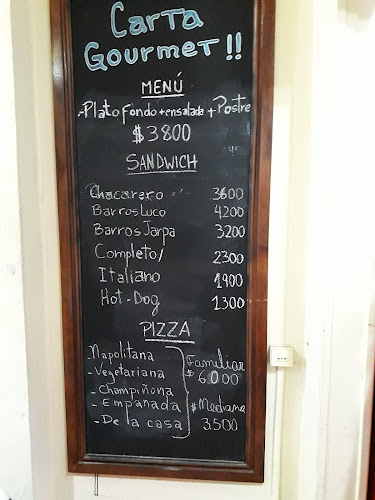 Carta
Gourmet!!
MENÚ
-Plato fondo + ensalada + Postre
$3800
SANDWICH
Chacarero 3600
Barros Luco 4200
Barros Jarpa 3200
Completo/ 2300
Italiano 1900
Hot-Dog 1300
PIZZA
-Napolitana
-Vegetariana
-Champiñona
-Empanada
-De la casa
Familiar
$6.000
$ Mediana
3500